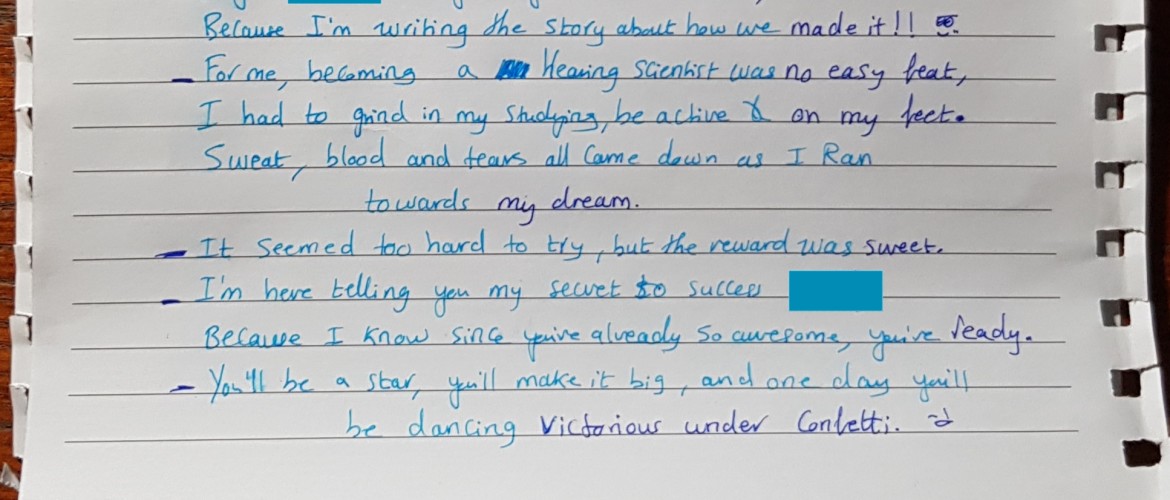 Because I'm writing the story about how we made it!!
- For me, becoming a Hearing Scientist was no easy feat,
I had to grind in my studying, be active & on my feet.
Sweat, blood and tears all came down as I Ran
towards my dream.
- It seemed too hard to try, but the reward was sweet.
- I'm here telling you my secret to success
Because I know since you're already so awesome, you're ready.
- You'll be a star, you'll make it big, and one day you'll
be dancing victorious under Confetti. :)